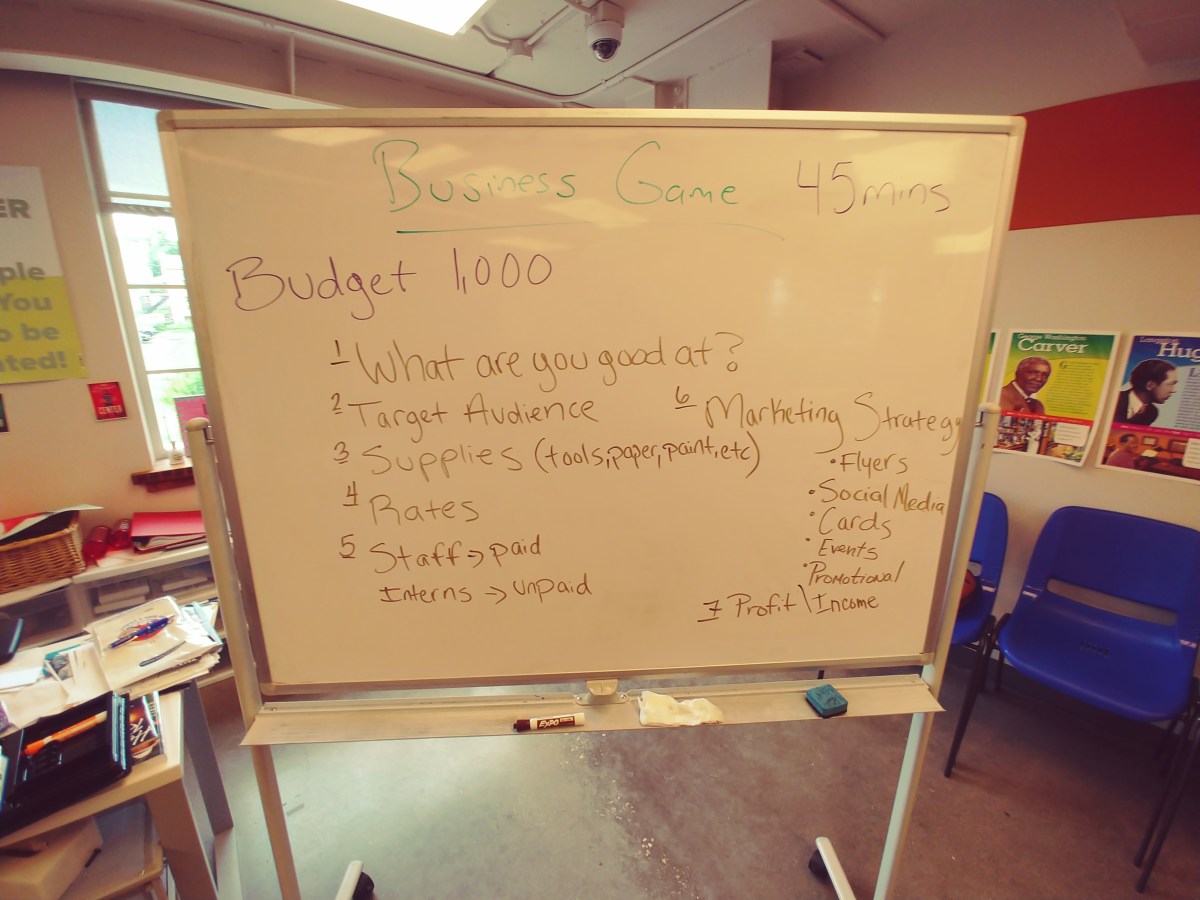 Business Game 45mins
Budget 1,000
1 What are you good at?
2 Target Audience
3 Supplies (tools,paper,paint,etc)
4 Rates
5 Staff → paid
Interns → unpaid
6 Marketing Strategy
• Flyers
• Social Media
• Cards
• Events
• Promotional
7 Profit \ Income
EXPO
ER
ple
You
o be
ted!
CENTER
George Washington
Carver
Hug